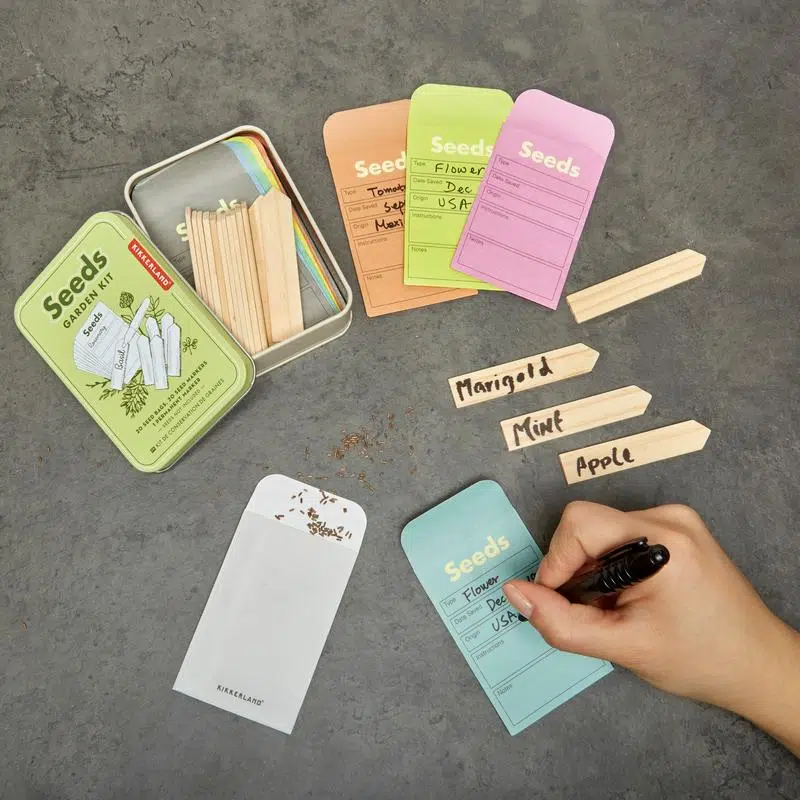 Seeds
GARDEN KIT
KIKKERLAND
Seeds
Rosemary
Basil
20 SEED BAGS, 20 SEED MARKERS
1 PERMANENT MARKER
— SEEDS NOT INCLUDED —
KIT DE CONSERVATION DE GRAINES
Seeds
Type
Date Saved
Origin
Instructions
Notes
Seeds
Type Flower
Date Saved Dec
Origin USA
Instructions
Notes
Seeds
Type
Date Saved
Origin
Instructions
Notes
Marigold
Mint
Apple
KIKKERLAND
Seeds
Type Flower
Date Saved Dec
Origin USA
Instructions
Notes